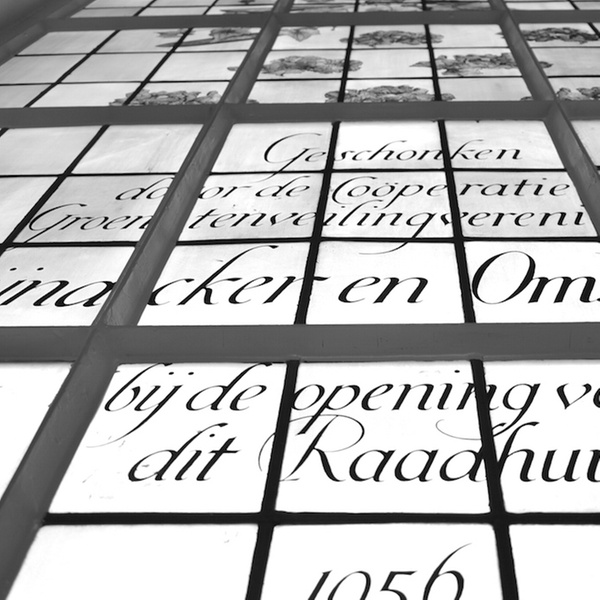 Geschonken
door de Coöperatie
Groententenveilingvereni
ijnacker en Om
bij de opening v
dit Raadhu
1956